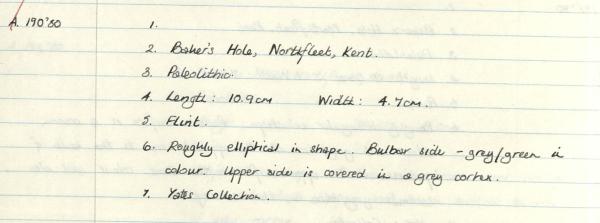 A. 190'80
1.
2. Baker's Hole, Northfleet, Kent.
3. Paleolithic.
4. Length: 10.9cm Width: 4.7cm.
5. Flint.
6. Roughly elliptical in shape. Bulbar side - grey/green in
colour. Upper side is covered in a grey cortex.
7. Yates Collection.